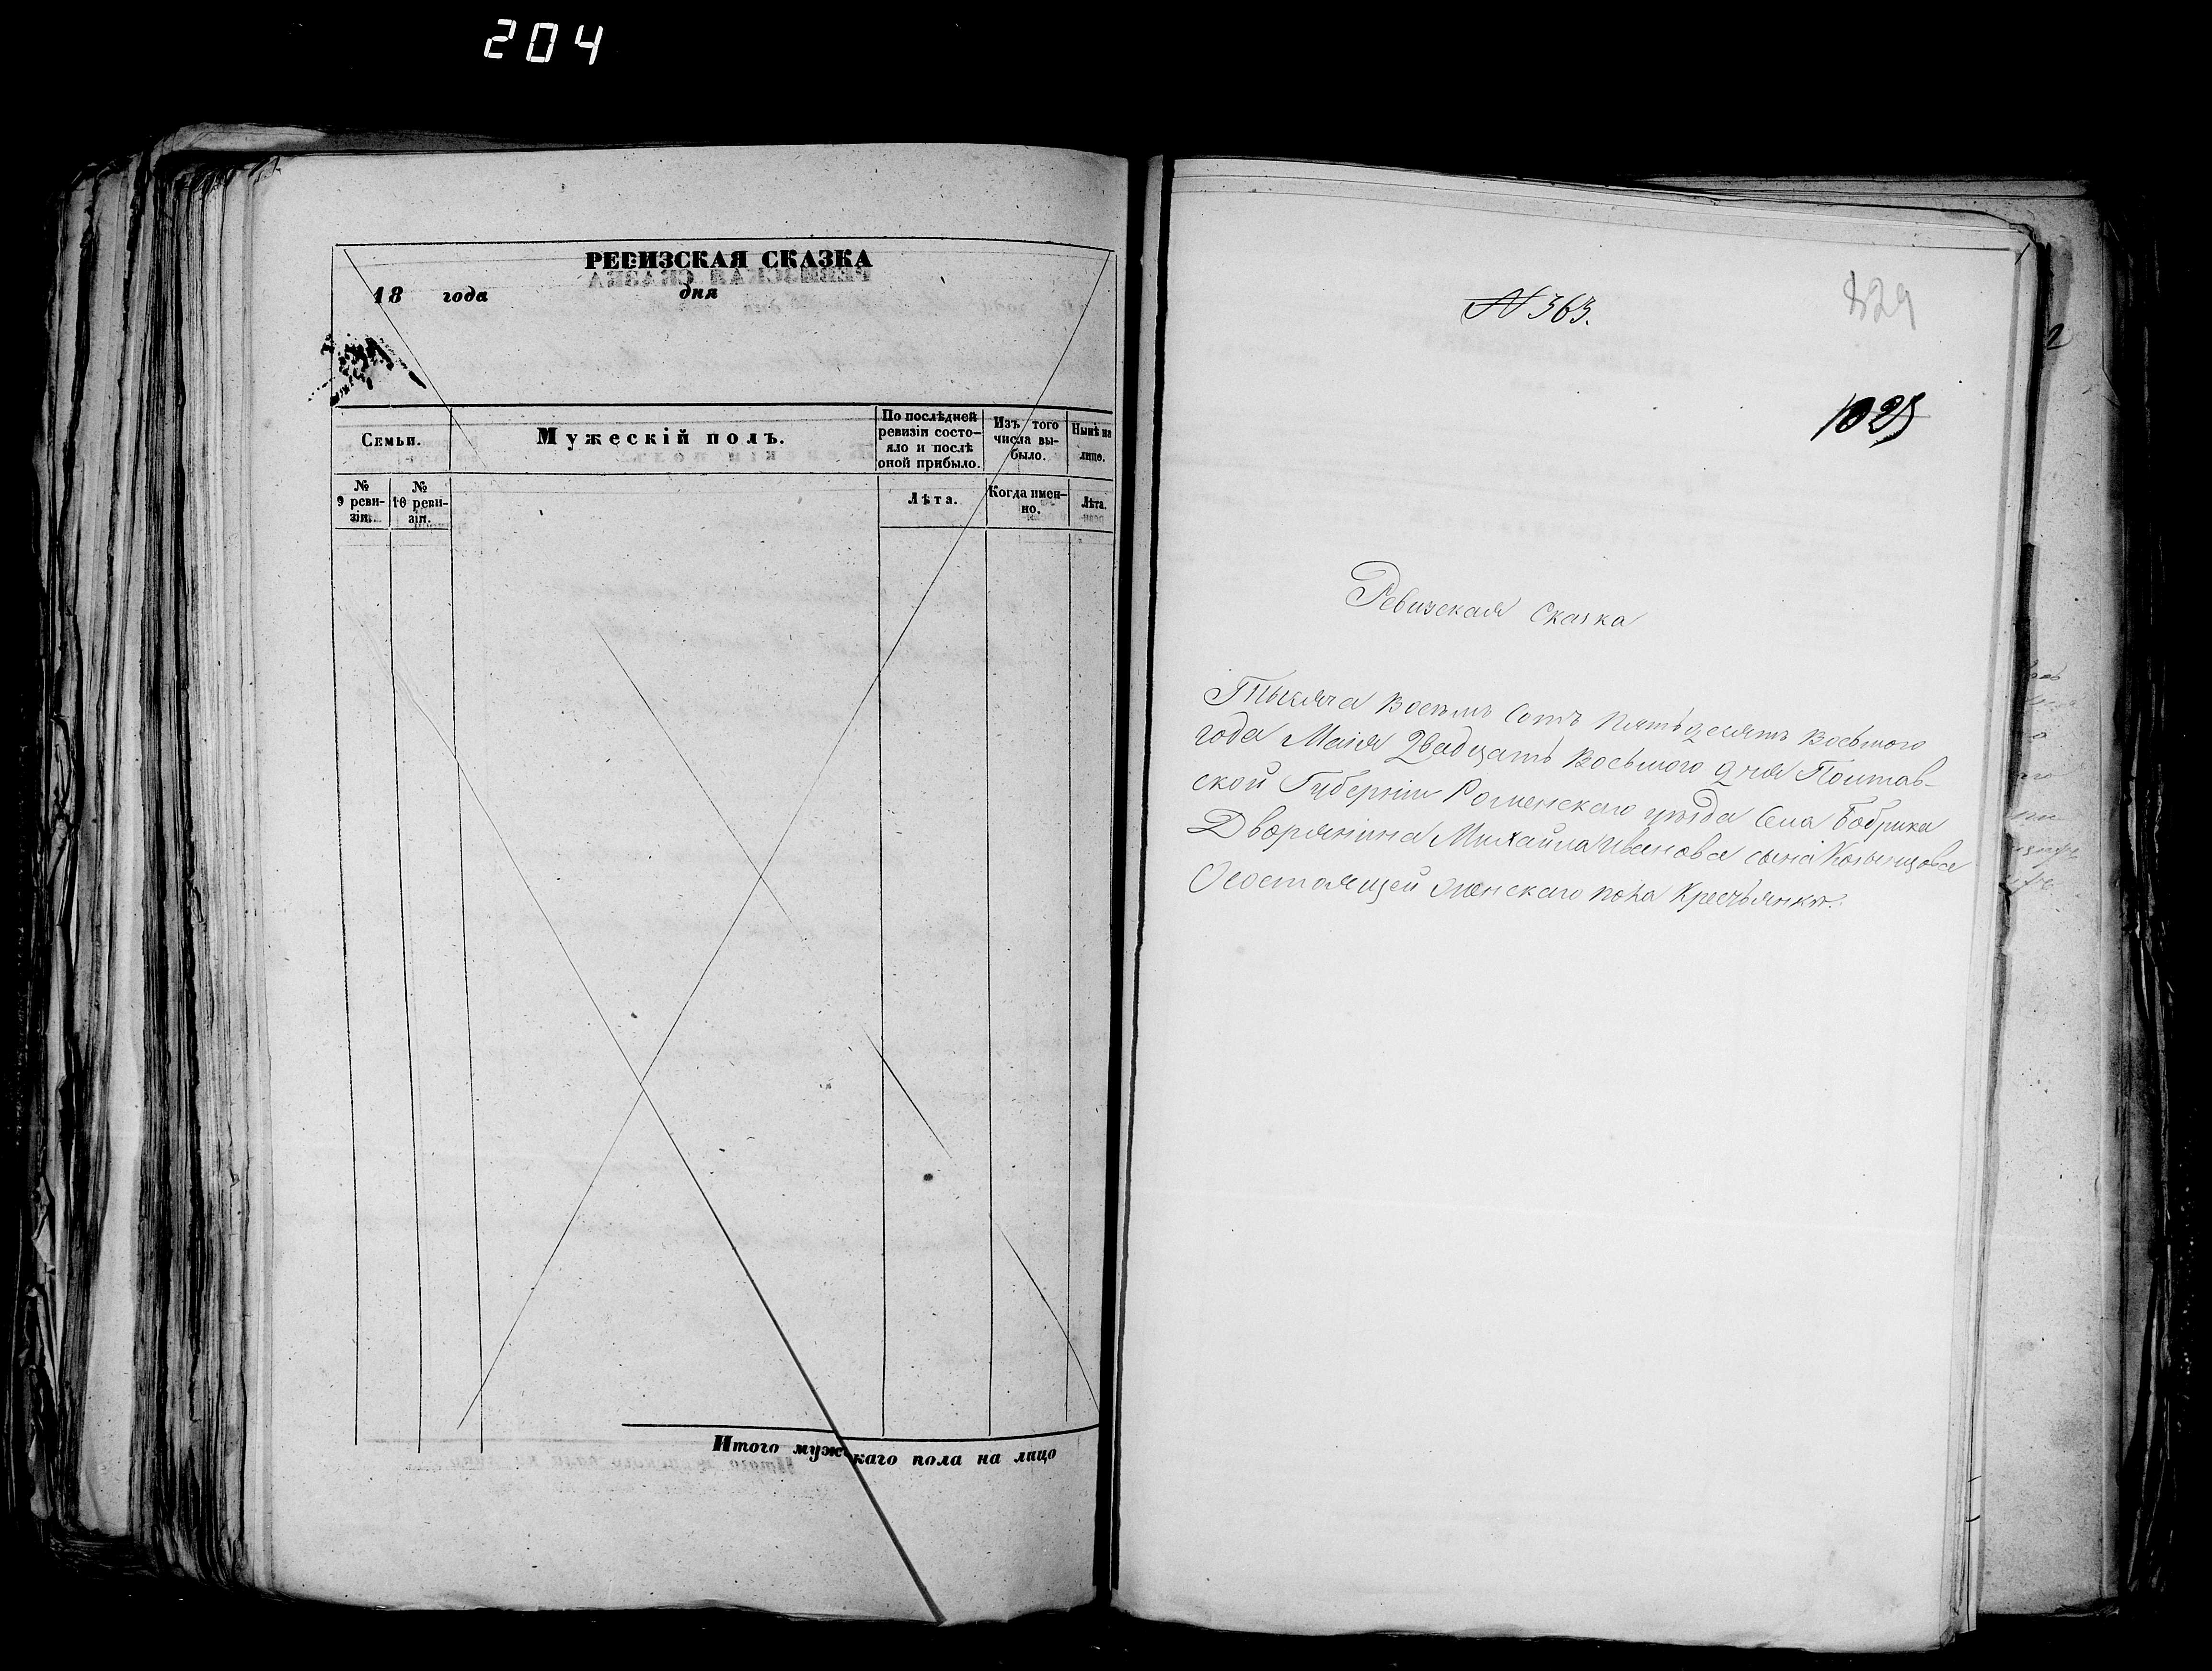 204
РЕВИЗСКАЯ СКАЗКА
18 года дня
Семьи.
Мужескій полъ.
По послѣдней ревизіи состояло и послѣ оной прибыло.
Изъ того числа выбыло.
Нынѣ на лицо.
№ 9 ревизіи.
№ 10 ревизіи.
Лѣта.
Когда именно.
Лѣта.
Итого мужскаго пола на лицо
№ 363.
829
1025
Ревизская Сказка
Тысяча Восемь Сотъ Пятьдесятъ Восьмого
года Маія Двадцать Восьмого дня Полтав-
ской Губерніи Роменскаго уѣзда Села Бобрика
Дворянина Михайла Иванова сына
Осостоящей женскаго пола Крестьянки.